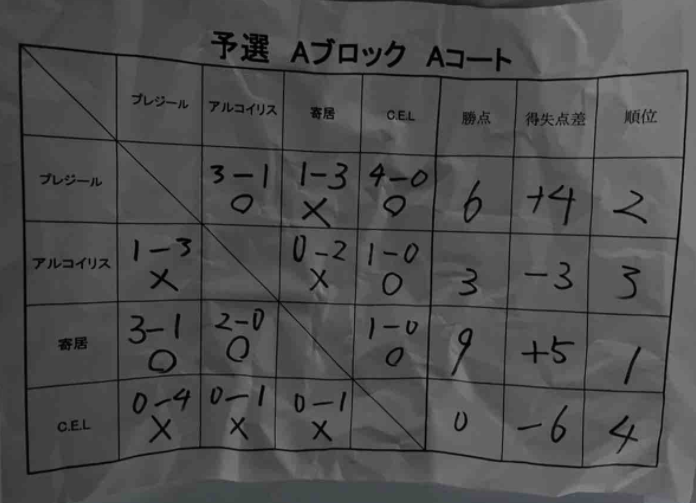 予選 Aブロック Aコート
プレジール アルコイリス 寄居 C.E.L 勝点 得失点差 順位
プレジール 3-1 1-3 4-0 6 +4 2
○ × ○
アルコイリス 1-3 0-2 1-0 3 -3 3
× × ○
寄居 3-1 2-0 1-0 9 +5 1
○ ○ ○
C.E.L 0-4 0-1 0-1 0 -6 4
× × ×